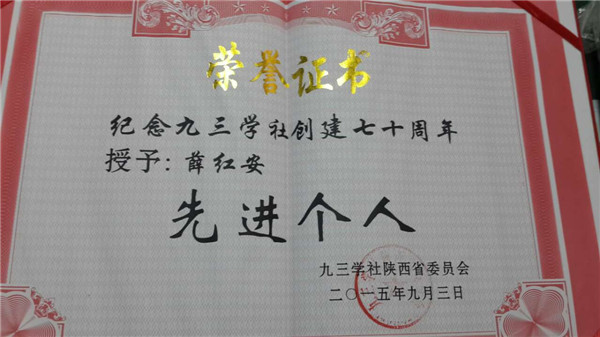 荣誉证书
纪念九三学社创建七十周年
授予：薛红安
先进个人
九三学社陕西省委员会
二〇一五年九月三日